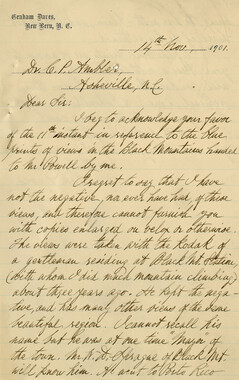 Graham Daves,
New Bern, N. C.
14th Nov. 1901.
Dr. C. P. Ambler,
Asheville, N.C.
Dear Sir:
I beg to acknowledge your favor
of the 11th instant in reference to the blue
prints of views in the Black Mountains handed
to Mr. Powell by me.
I regret to say that I have
not the negative, nor ever have had, of these
views, and therefore cannot furnish you
with copies enlarged on velox or otherwise.
The views were taken with the Kodak of
a gentleman residing at Black Mt. Station,
(with whom I did much mountain climbing)
about three years ago. He kept the nega-
tive, and has many other views of the same
beautiful region. I cannot recall his
name but he was at one time Mayor of
the town. Mr. W. H. Sprague of Black Mt.
will know him. He went to Porto Rico